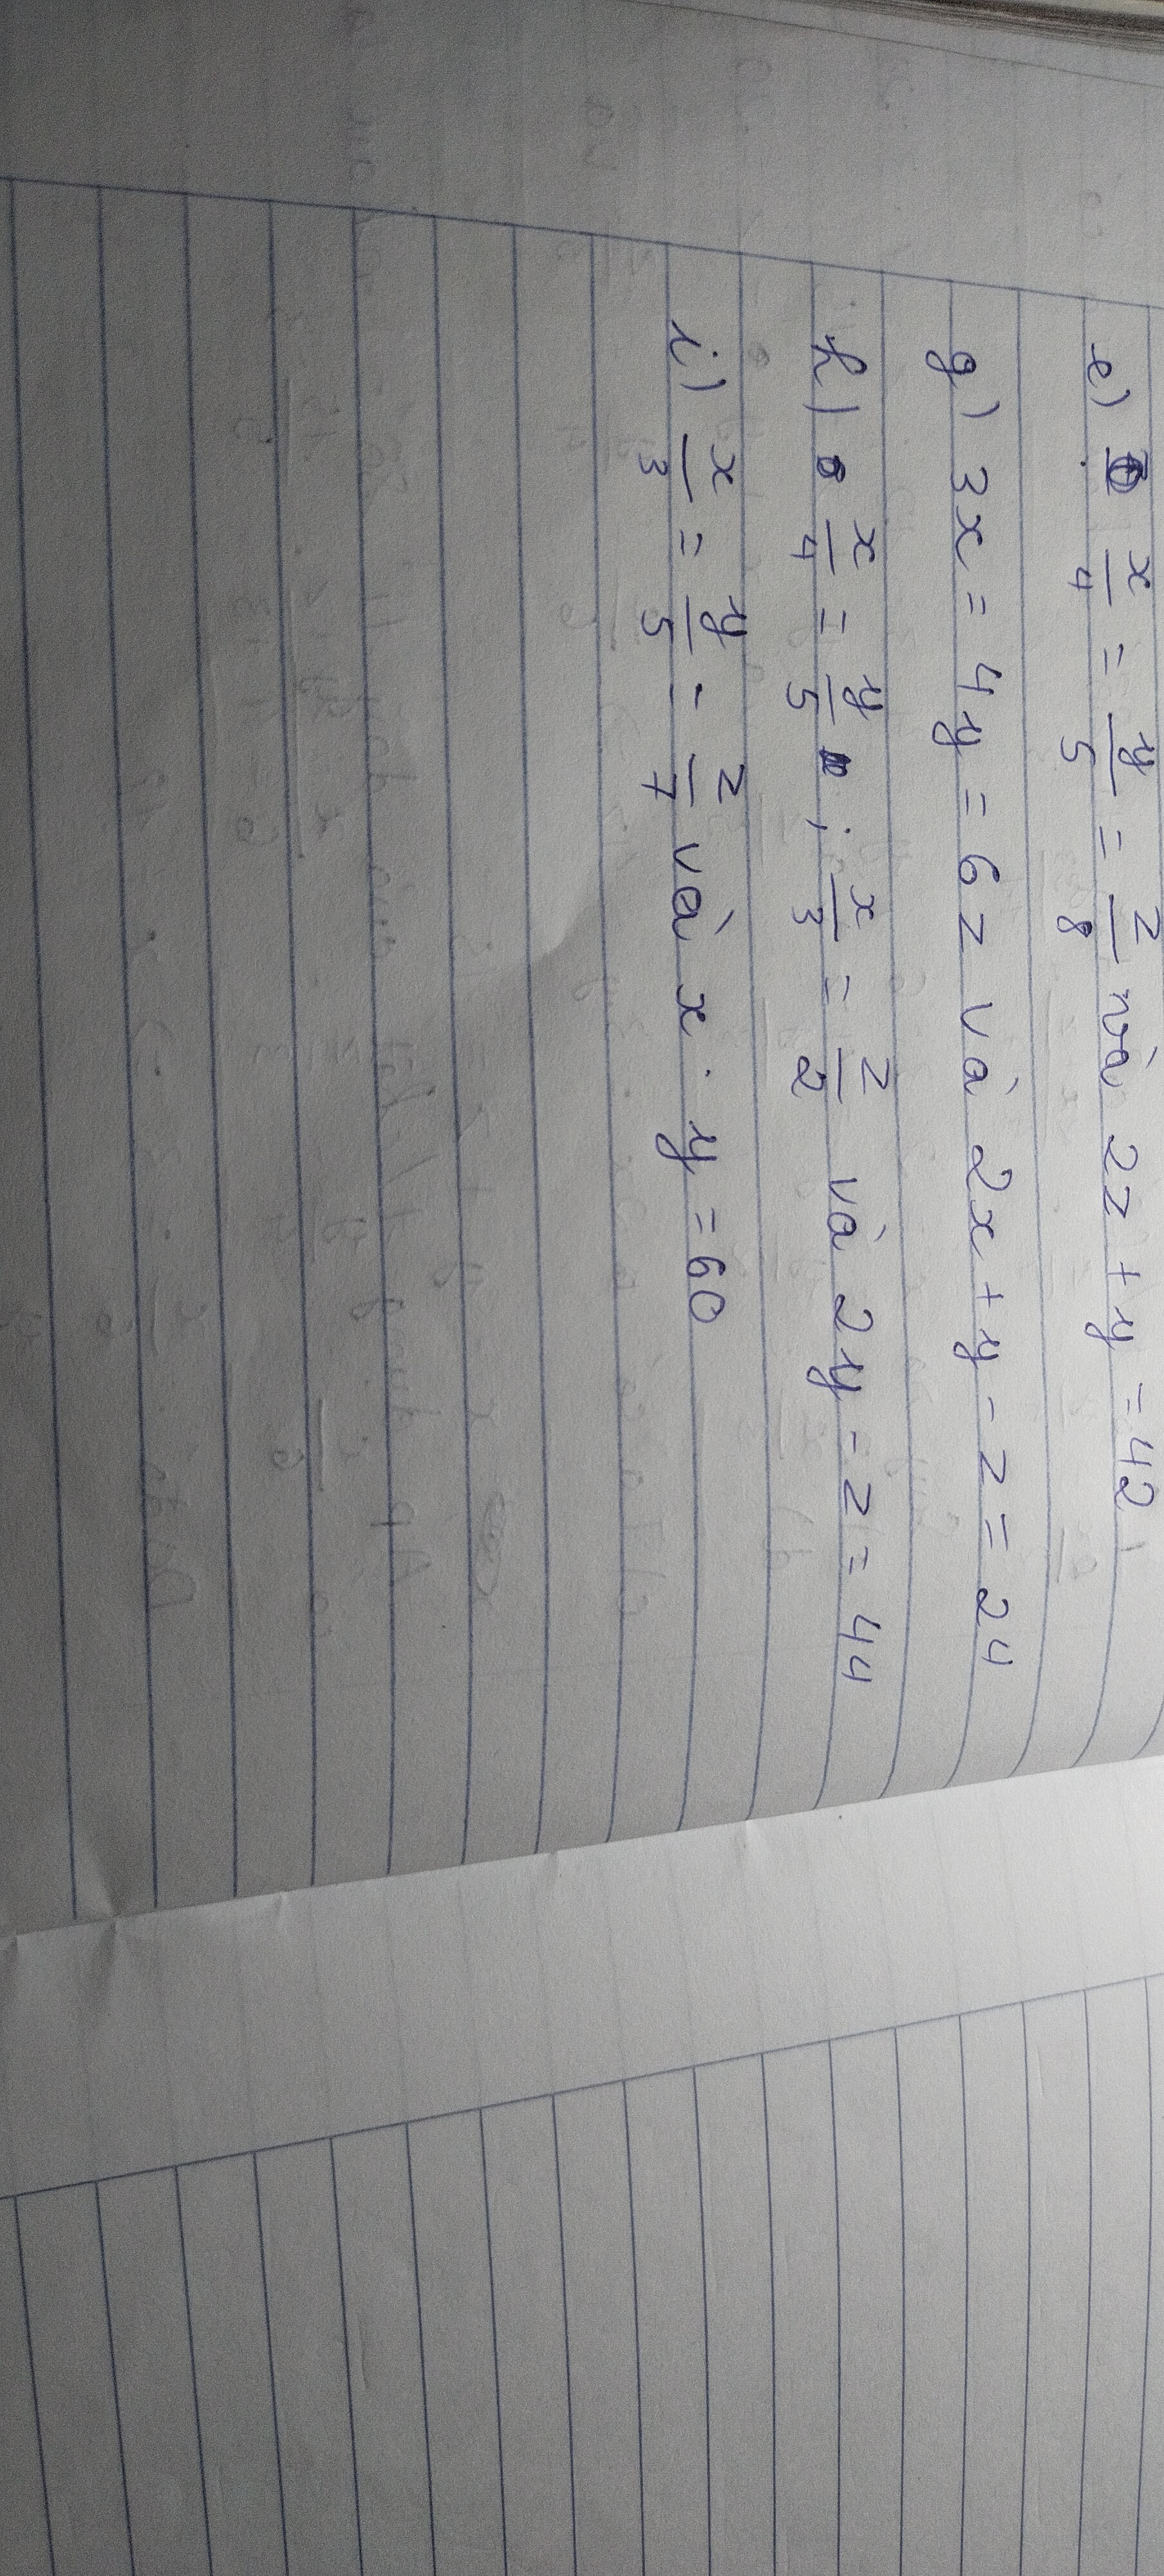 e) x/4 = y/5 = z/8 và 2z + y = 42
g) 3x = 4y = 6z và 2x + y - z = 24
h) x/4 = y/5 ; x/3 = z/2 và 2y - z = 44
i) x/3 = y/5 - z/7 và x . y = 60